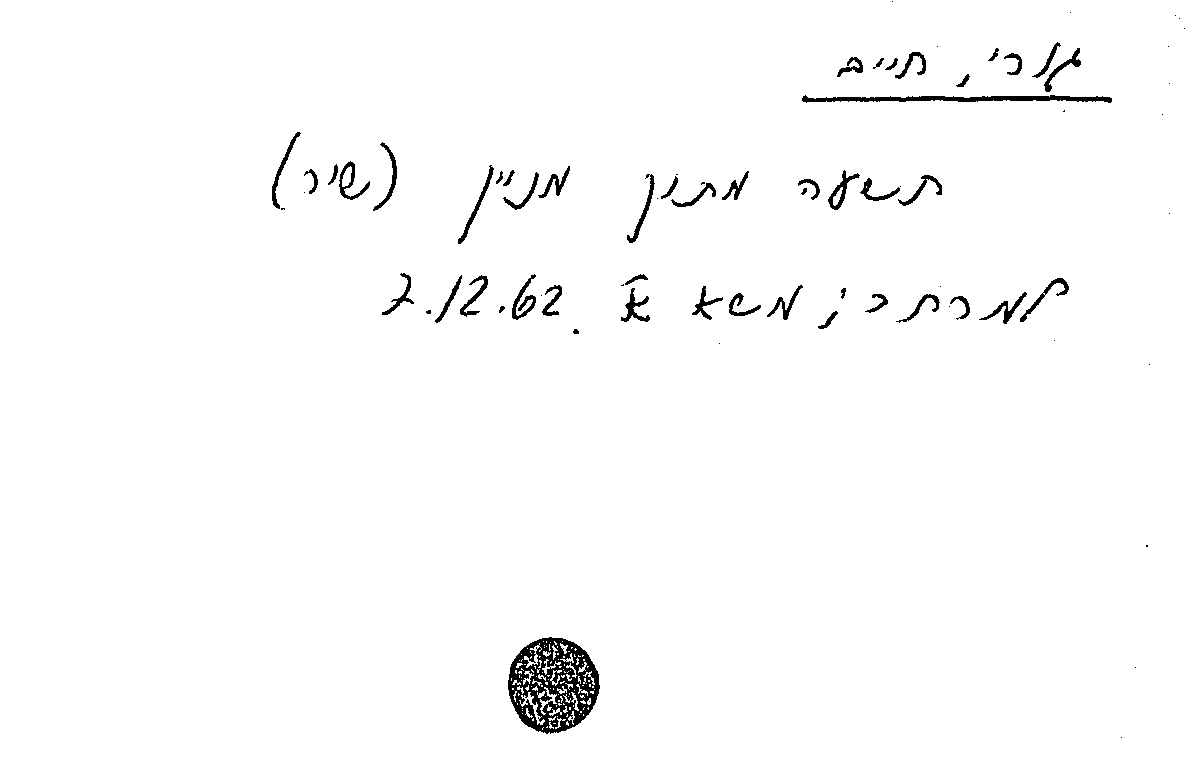 גורי, חיים
תשעה מתוך מניין (שיר)
למרחב; משא א. 7.12.62